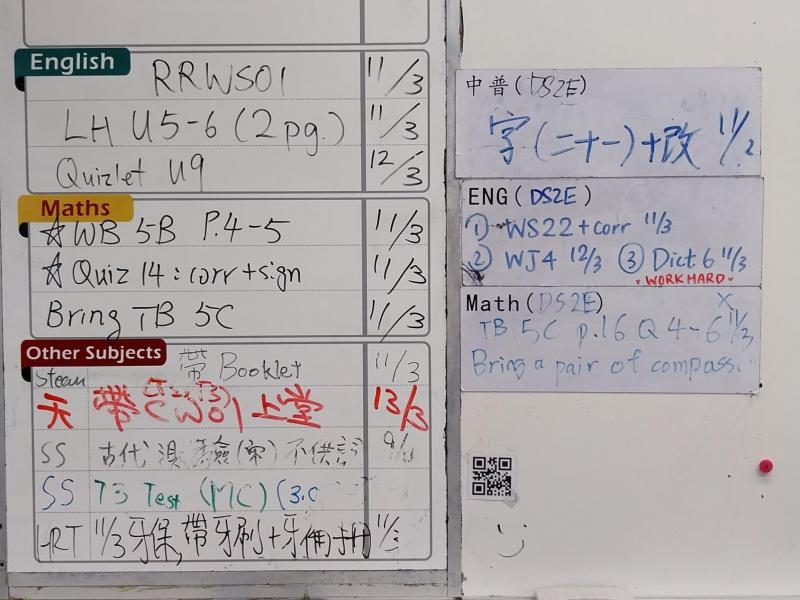 English
RRWS01 11/3
LH U5-6 (2pg.) 11/3
Quizlet U9 12/3
Maths
☆ WB 5B P.4-5 11/3
☆ Quiz 14: corr+sign 11/3
Bring TB 5C 11/3
Other Subjects
Steam 帶 Booklet 11/3
帶 CW01 上堂 13/3
SS 古代 不供
SS T3 Test (MC)
HRT 11/3 牙保, 帶牙刷+牙 11/3
中普(DS2E)
字(二十一)+改 11/2
ENG(DS2E)
① WS22+corr 11/3
② WJ4 12/3 ③ Dict 6 11/3
WORK HARD
Math(DS2E)
TB 5C p.16 Q4-6 11/3
Bring a pair of compass.